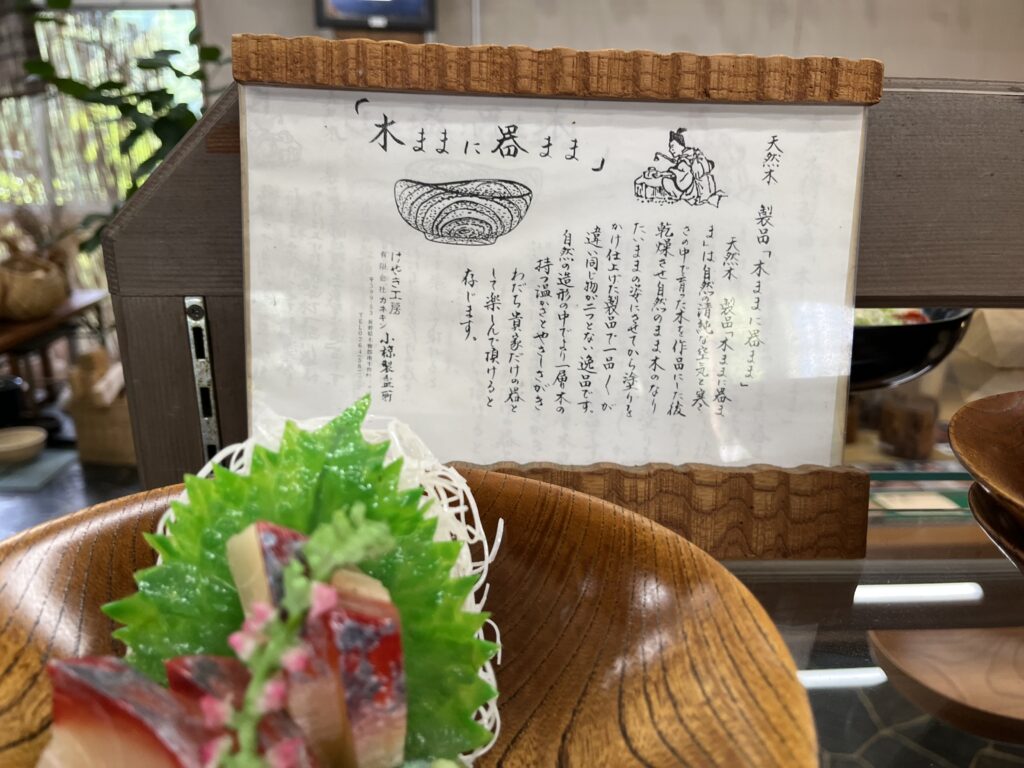 「木ままに器まま」
天然木
製品「木ままに器まま」
天然木 製品「木ままに器ま
ま」は自然の清純な空気と寒
さの中で育った木を作品にした後
乾燥させ自然のまま木のなり
たいままの姿にさせてから塗りを
かけ仕上げた製品で一品〱が
違い同じ物が二つとない逸品です。
自然の造形の中でより一層木の
持つ温かさとやさしさがき
わだち貴家だけの器と
して楽しんで頂けると
存じます。
けやき工房
有限会社カネキン小椋製盆所